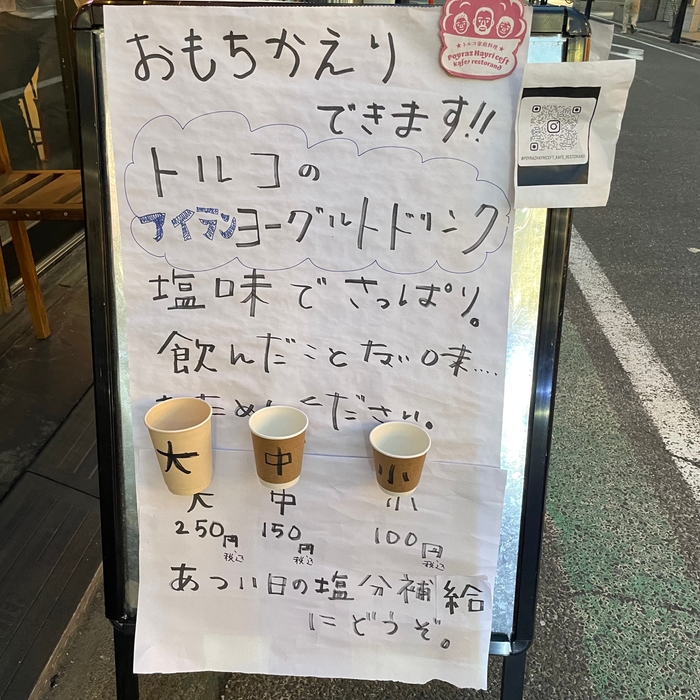 おもちかえり
できます!!
トルコの
アイランヨーグルトドリンク
塩味でさっぱり。
飲んだことない味....
ください。
大 中 小
大 中 小
250円 150円 100円
税込 税込 税込
あつい日の塩分補給
にどうぞ。
★トルコ家庭料理★
Poyraz Hayri Ceft
Kafe&restorand